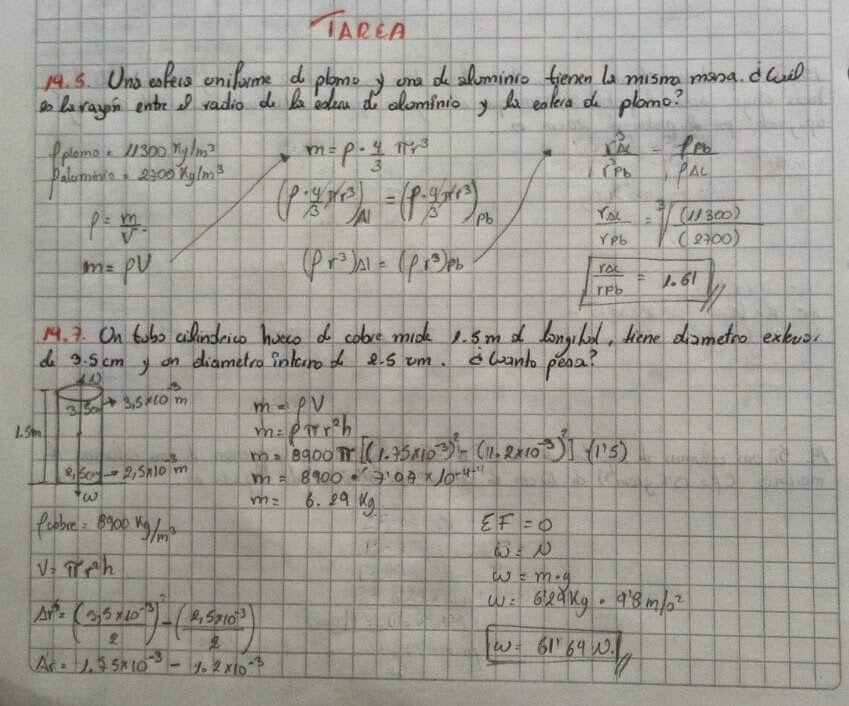 TAREA
14.5. Una esfera uniforme d plomo y una de aluminio tienen la misma masa. ¿Cuál
es la razón entre el radio de la esfera de aluminio y la esfera de plomo?
ρplomo = 11300 Kg/m³
ρaluminio = 2700 Kg/m³
ρ = m/V
m = ρV
m = ρ · 4/3 πr³
(ρ · 4/3 πr³)Al = (ρ · 4/3 πr³)Pb
(ρ r³)Al = (ρ r³)Pb
r³Al/r³Pb = ρPb/ρAl
rAl/rPb = ³√(11300)/(2700)
rAl/rPb = 1.61
14.7. Un tubo cilindrico hueco d cobre mide 1.5m d longitud, tiene diametro exterior
de 3.5cm y un diametro interno d 2.5 cm. ¿Cuanto pesa?
1.5m
3,5cm → 3,5x10⁻³ m
2,5cm → 2,5x10⁻³ m
w
ρcobre = 8900 Kg/m³
V = πr²h
Δr² = (3,5x10⁻³/2)² - (2,5x10⁻³/2)
Δr = 1.75x10⁻³ - 1.2x10⁻³
m = ρV
m = ρπr²h
m = 8900 π [(1.75x10⁻³)² - (1.2x10⁻³)²] · (1'5)
m = 8900 · 7'07 x 10⁻⁴
m = 6.29 Kg
ΣF = 0
w = N
w = m·g
w = 6'29 Kg · 9'8 m/s²
w = 61'64 N.